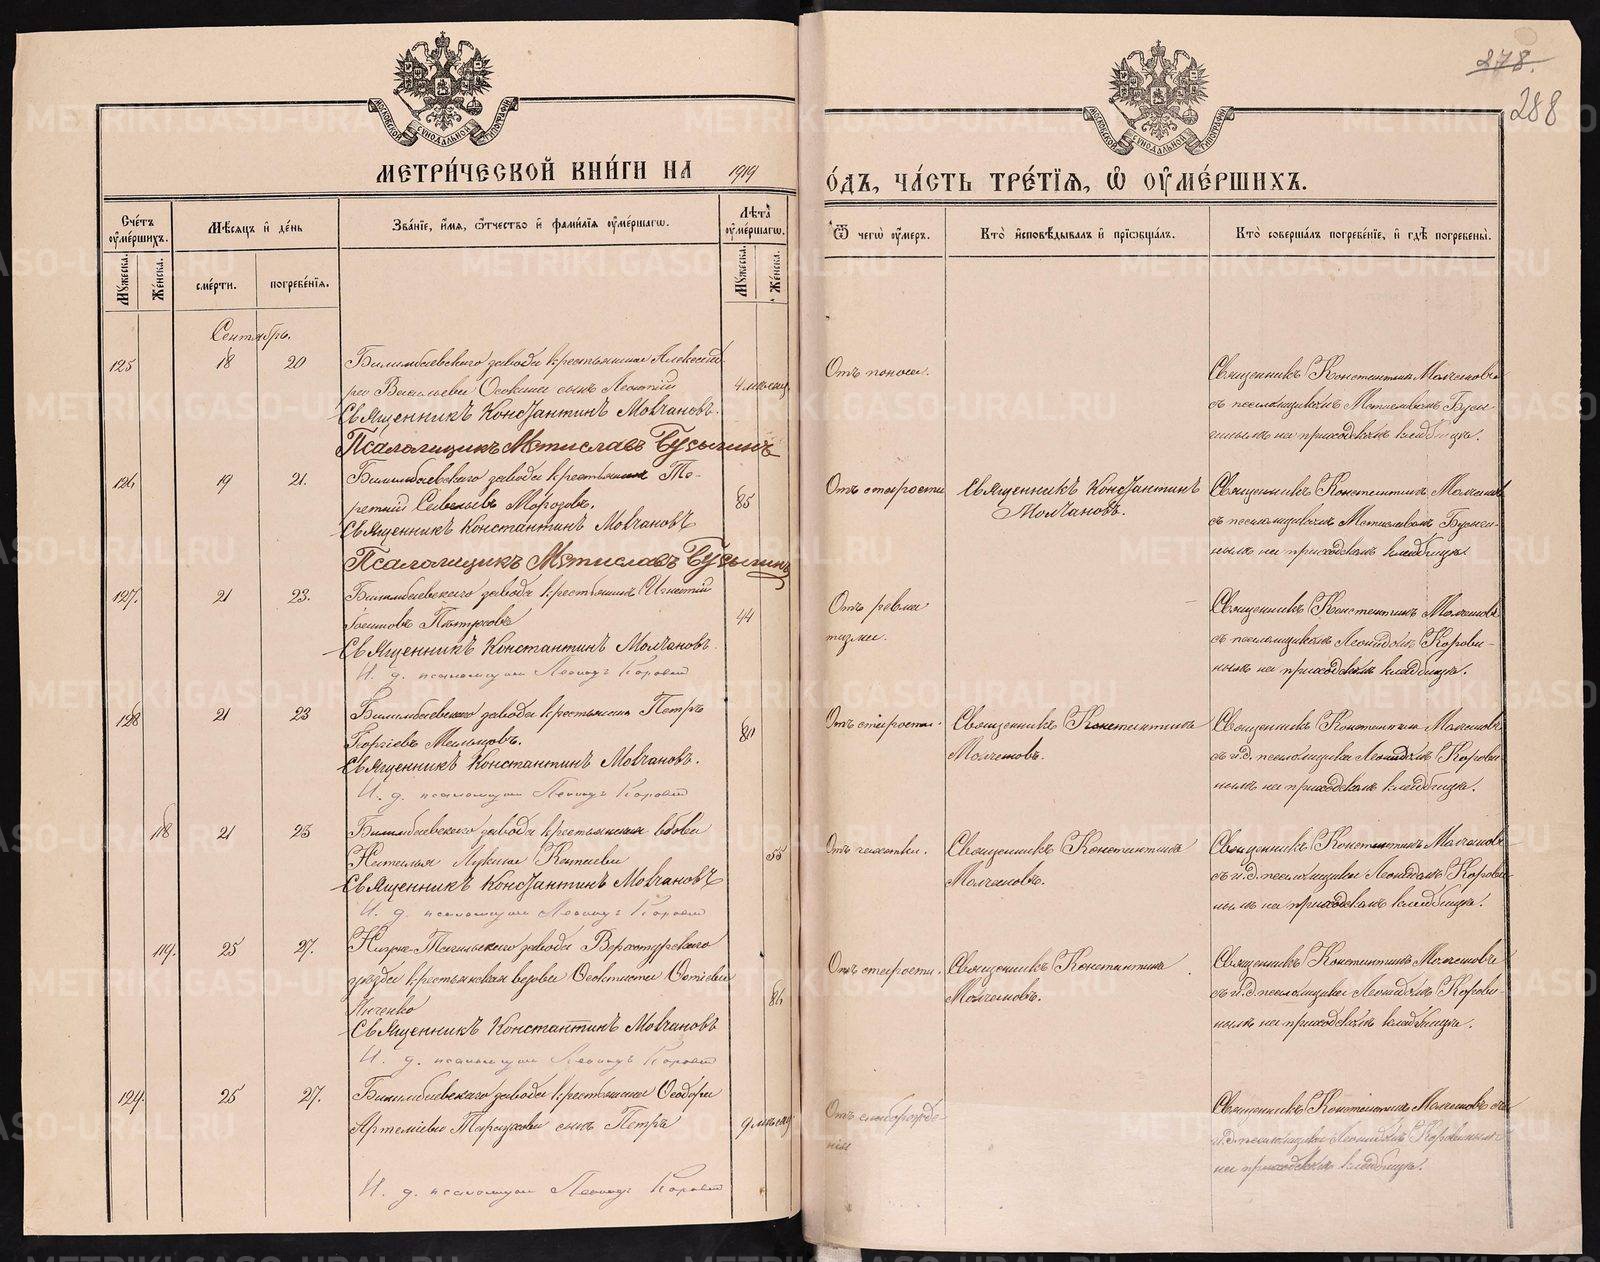 278.
288
МОСКОВСКОЙ СУНОДАЛЬНОЙ ТИПОГРАФІИ
МОСКОВСКОЙ СУНОДАЛЬНОЙ ТИПОГРАФІИ
МЕТРИ́ЧЕСКОЙ КНИ́ГИ НА 1919
О́ДЪ, ЧА́СТЬ ТРЕ́ТІЯ, Ѿ ОУМЕ́РШИХЪ.
Сче́тъ оуме́ршихъ.
Мужеска.
Же́нска.
Мѣ́сяцъ и де́нь
сме́рти.
погребе́нія.
Зва́ніе, и́мя, ѻ́тчество и фами́лія оуме́ршагѡ.
Лѣ́та оуме́ршагѡ.
Мужеска.
Же́нска.
Ѿ чегѡ̀ оу́меръ.
Кто̀ исповѣ́дывалъ и пріѡбща́лъ.
Кто̀ соверша́лъ погребе́ніе, и гдѣ̀ погребены̀.
Сентябрь.
125 18 20
Билимбаевскаго завода крестьянина Александ-
ра Васильева Осокина сынъ Леонтій
4 мѣсяц
Священникъ Константинъ Молчановъ.
Псаломщикъ Мстиславъ Бусыгинъ
Отъ поноса.
Священникъ Константинъ Молчановъ
съ псаломщикомъ Мстиславомъ Бусы
гинымъ на приходскомъ кладбищѣ.
126 19 21.
Билимбаевскаго завода крестьянинъ Те-
рентій Савельевъ Морозовъ.
85
Священникъ Константинъ Молчановъ
Псаломщикъ Мстиславъ Бусыгинъ
Отъ старости
Священникъ Константинъ
Молчановъ.
Священникъ Константинъ Молчановъ
съ псаломщикомъ Мстиславомъ Бусыги-
нымъ на приходскомъ кладбищѣ.
127. 21 23.
Билимбаевскаго завода крестьянинъ Игнатій
44
Священникъ Константинъ Молчановъ.
И. д. псаломщика Леонидъ Коровин
Отъ ревма
тизма.
Священникъ Константинъ Молчановъ
съ псаломщикомъ Леонидомъ Корови-
нымъ на приходскомъ кладбищѣ.
128 21 23
Билимбаевскаго завода крестьянинъ Петръ
Георгіевъ Мельцовъ.
80
Священникъ Константинъ Молчановъ.
И. д. псаломщика Леонидъ Коровин
Отъ старости.
Священникъ Константинъ
Молчановъ.
Священникъ Константинъ Молчановъ
съ и.д. псаломщика Леонидомъ Корови
нымъ на приходскомъ кладбищѣ.
118 21 23
Билимбаевскаго завода крестьянская вдова
Наталья Лукина
55
Священникъ Константинъ Молчановъ
И. д. псаломщика Леонидъ Коровин
Отъ чахотки.
Священникъ Константинъ
Молчановъ.
Священникъ Константинъ Молчановъ
съ и.д. псаломщика Леонидомъ Корови
нымъ на приходскомъ кладбищѣ.
119. 25 27.
Нижне-Тагильскаго завода Верхотурскаго
уѣзда крестьянская вдова Ѳеоктиста
86
Священникъ Константинъ Молчановъ
И. д. псаломщика Леонидъ Коровин
Отъ старости.
Священникъ Константинъ
Молчановъ.
Священникъ Константинъ Молчановъ
съ и.д. псаломщика Леонидомъ Корови-
нымъ на приходскомъ кладбищѣ.
129. 25 27.
Билимбаевскаго завода крестьянина Ѳеодора
Артеміева сынъ Петръ
9 мѣсяц
И. д. псаломщика Леонидъ Коровин
Отъ слаборожде-
нія
Священникъ Константинъ Молчановъ съ
и.д. псаломщика Леонидомъ Коровинымъ
на приходскомъ кладбищѣ.
METRIKI.GASO-URAL.RU